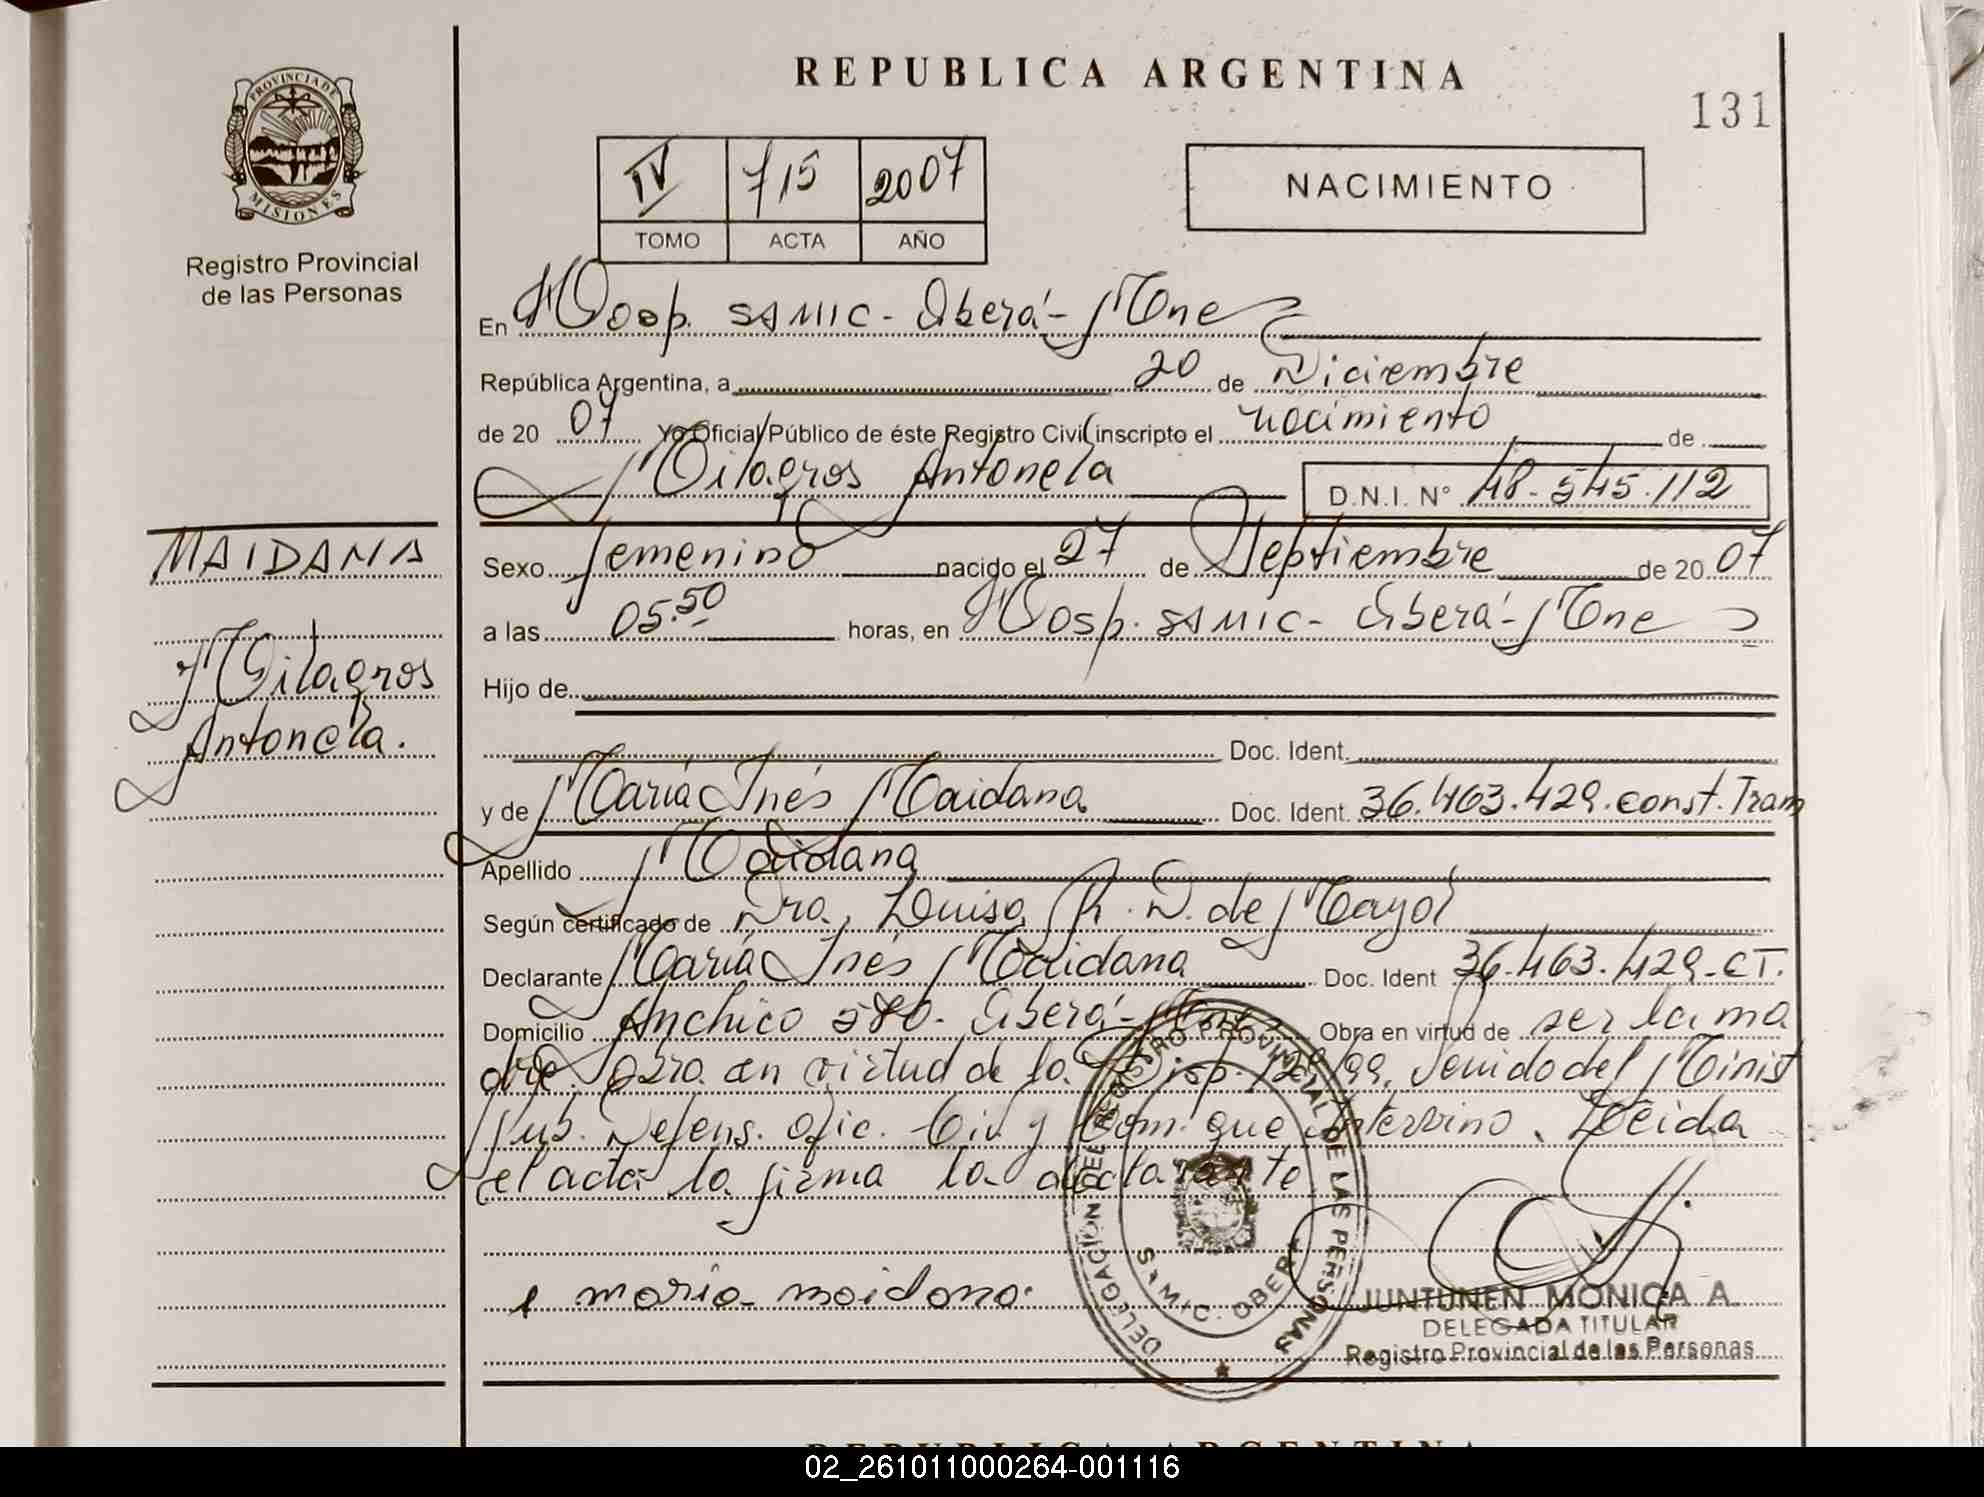 REPUBLICA ARGENTINA
131
PROVINCIA DE
MISIONES
Registro Provincial
de las Personas
IV 715 2007
TOMO ACTA AÑO
NACIMIENTO
En Hosp. SAMIC - Oberá - Mnes
República Argentina, a 20 de Diciembre
de 20 07 Yo Oficial Público de éste Registro Civil inscripto el nacimiento de
Milagros Antonela D.N.I. Nº 48.545.112
MAIDANA
Milagros
Antonela.
Sexo femenino nacido el 27 de Septiembre de 20 07
a las 05.50 horas, en Hosp. SAMIC - Oberá - Mnes
Hijo de
Doc. Ident.
y de María Inés Maidana Doc. Ident. 36.463.429. const. Tram
Apellido Maidana
Según certificado de Dra. Luisa R. D. de Mayol
Declarante María Inés Maidana Doc. Ident 36.463.429 - CT.
Domicilio Anchico 580 - Oberá - Mnes Obra en virtud de ser la ma
dre. Obra en virtud de la Disp. 128/99, Venido del Minist
Pub. Defens. Ofic. Civ. y Com. que intervino. Leida
el acta la firma la declarante
maria maidana.
DELEGACION DEL REGISTRO PROVINCIAL DE LAS PERSONAS
SAMIC. OBERA
JUNTUNEN MONICA A.
DELEGADA TITULAR
Registro Provincial de las Personas
REPUBLICA ARGENTINA
02_261011000264-001116